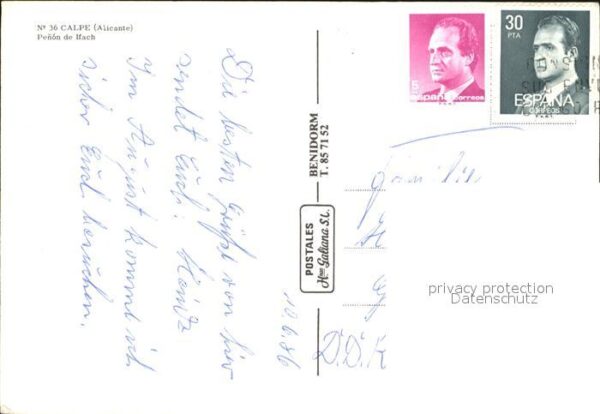 Nº 36 CALPE (Alicante)
Peñón de Ifach
Die besten Grüße von hier
sendet Euch. Heinz
Im August komme ich
sicher Euch besuchen.
BENIDORM
T. 85 71 52
POSTALES
Hnos Galiana S.L.
10.6.86
5
España correos
30
PTA
ESPAÑA
CORREOS
Familie
D.D.R
privacy protection
Datenschutz